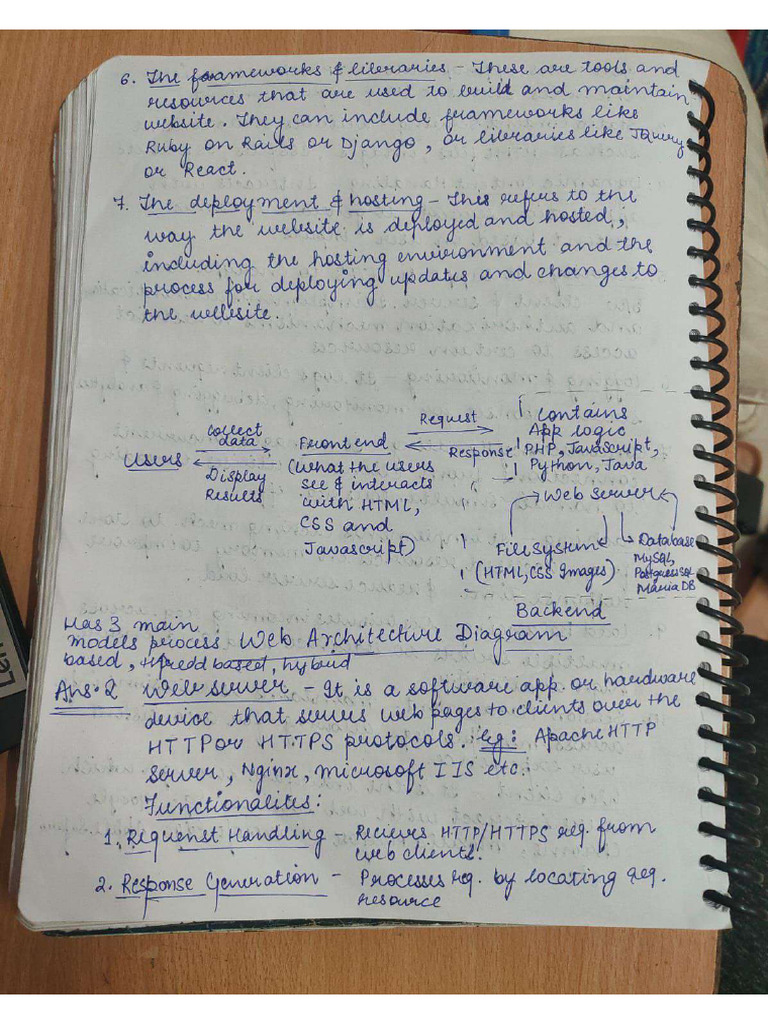 6. The frameworks & libraries - These are tools and
resources that are used to build and maintain
website. They can include frameworks like
Ruby on Rails or Django, or libraries like JQuery
or React.
7. The deployment & hosting - This refers to the
way the website is deployed and hosted,
including the hosting environment and the
process for deploying updates and changes to
the website.
Users
Collect
data
Display
Results
Frontend
(What the users
see & interacts
with HTML,
CSS and
Javascript)
Request
Response
Contains
App logic
PHP, JavaScript,
Python, Java
Web Server
File System
(HTML, CSS Images)
Database
MySQL,
PostgressSQL
Maria DB
Backend
Has 3 main
models process
based, thredd based, hybrid
Web Architecture Diagram
Ans-2 Web server - It is a software app. or hardware
device that serves web pages to clients over the
HTTP or HTTPS protocols. Eg: Apache HTTP
Server, Nginx, Microsoft IIS etc.
Functionalites:
1. Requenst Handling - Recieves HTTP/HTTPS req. from
web clients.
2. Response Generation - Processes req. by locating req.
resource